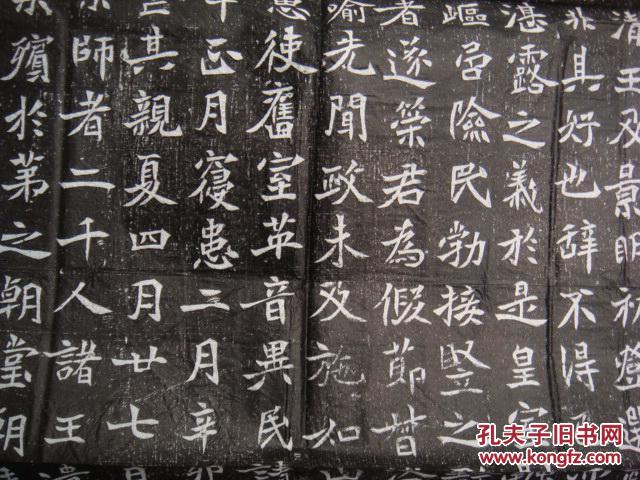 清王及景明初登
非其好也辭不得
湛露之義於是皇宗
嶇嵒險民勃接豎之
者遂榮君為假節督
喻先聞政未及施如
惠使舊室革音異民
年正月寢患二月辛卯
其親夏四月廿七
師者二千人諸王
殯於第之朝堂朝
孔夫子旧书网
www.kongfz.com